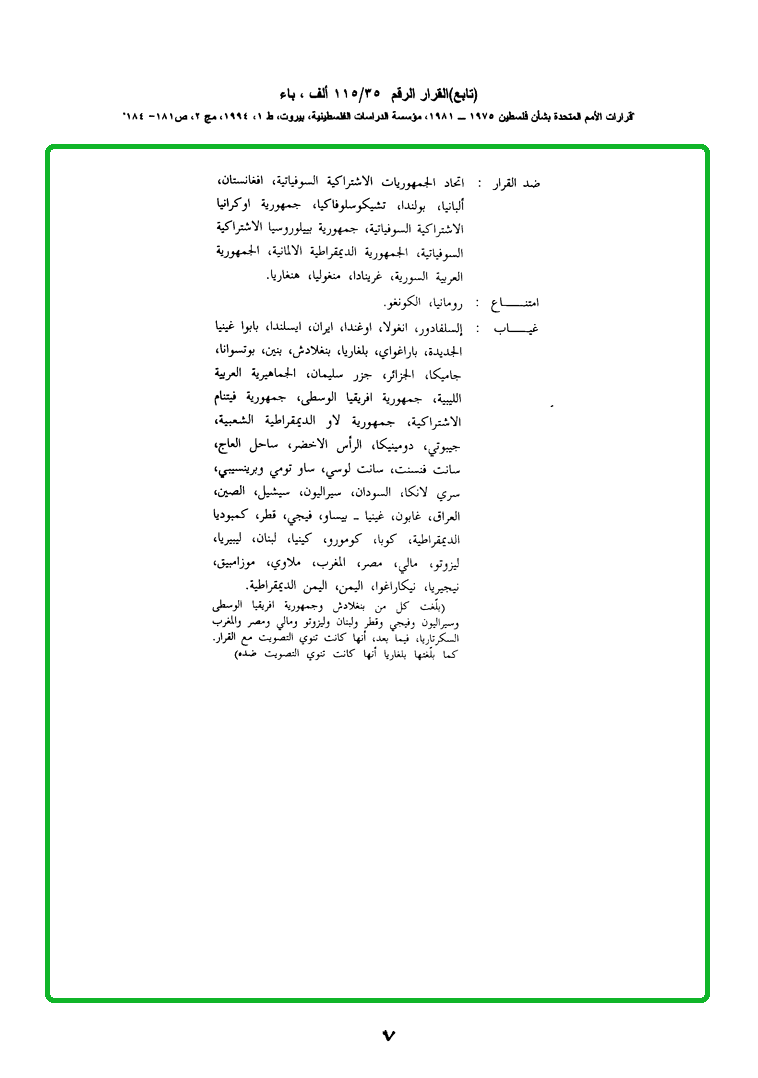 (تابع)القرار الرقم ١١٥/٣٥ ألف ، باء
"قرارات الأمم المتحدة بشأن فلسطين ١٩٧٥ – ١٩٨١، مؤسسة الدراسات الفلسطينية، بيروت، ط ١، ١٩٩٤، مج ٢، ص١٨١- ١٨٤"
ضد القرار : اتحاد الجمهوريات الاشتراكية السوفياتية، افغانستان،
ألبانيا، بولندا، تشيكوسلوفاكيا، جمهورية اوكرانيا
الاشتراكية السوفياتية، جمهورية بييلوروسيا الاشتراكية
السوفياتية، الجمهورية الديمقراطية الالمانية، الجمهورية
العربية السورية، غرينادا، منغوليا، هنغاريا.
امتنـــاع : رومانيا، الكونغو.
غيـــاب : إلسلفادور، انغولا، اوغندا، ايران، ايسلندا، بابوا غينيا
الجديدة، باراغواي، بلغاريا، بنغلادش، بنين، بوتسوانا،
جاميكا، الجزائر، جزر سليمان، الجماهيرية العربية
الليبية، جمهورية افريقيا الوسطى، جمهورية فيتنام
الاشتراكية، جمهورية لاو الديمقراطية الشعبية،
جيبوتي، دومينيكا، الرأس الاخضر، ساحل العاج،
سانت فنسنت، سانت لوسي، ساو تومي وبرينسيبي،
سري لانكا، السودان، سيراليون، سيشيل، الصين،
العراق، غابون، غينيا – بيساو، فيجي، قطر، كمبوديا
الديمقراطية، كوبا، كومورو، كينيا، لبنان، ليبيريا،
ليزوتو، مالي، مصر، المغرب، ملاوي، موزامبيق،
نيجيريا، نيكاراغوا، اليمن، اليمن الديمقراطية.
(بلّغت كل من بنغلادش وجمهورية افريقيا الوسطى
وسيراليون وفيجي وقطر ولبنان وليزوتو ومالي ومصر والمغرب
السكرتاريا، فيما بعد، أنها كانت تنوي التصويت مع القرار.
كما بلّغتها بلغاريا أنها كانت تنوي التصويت ضده)
٧